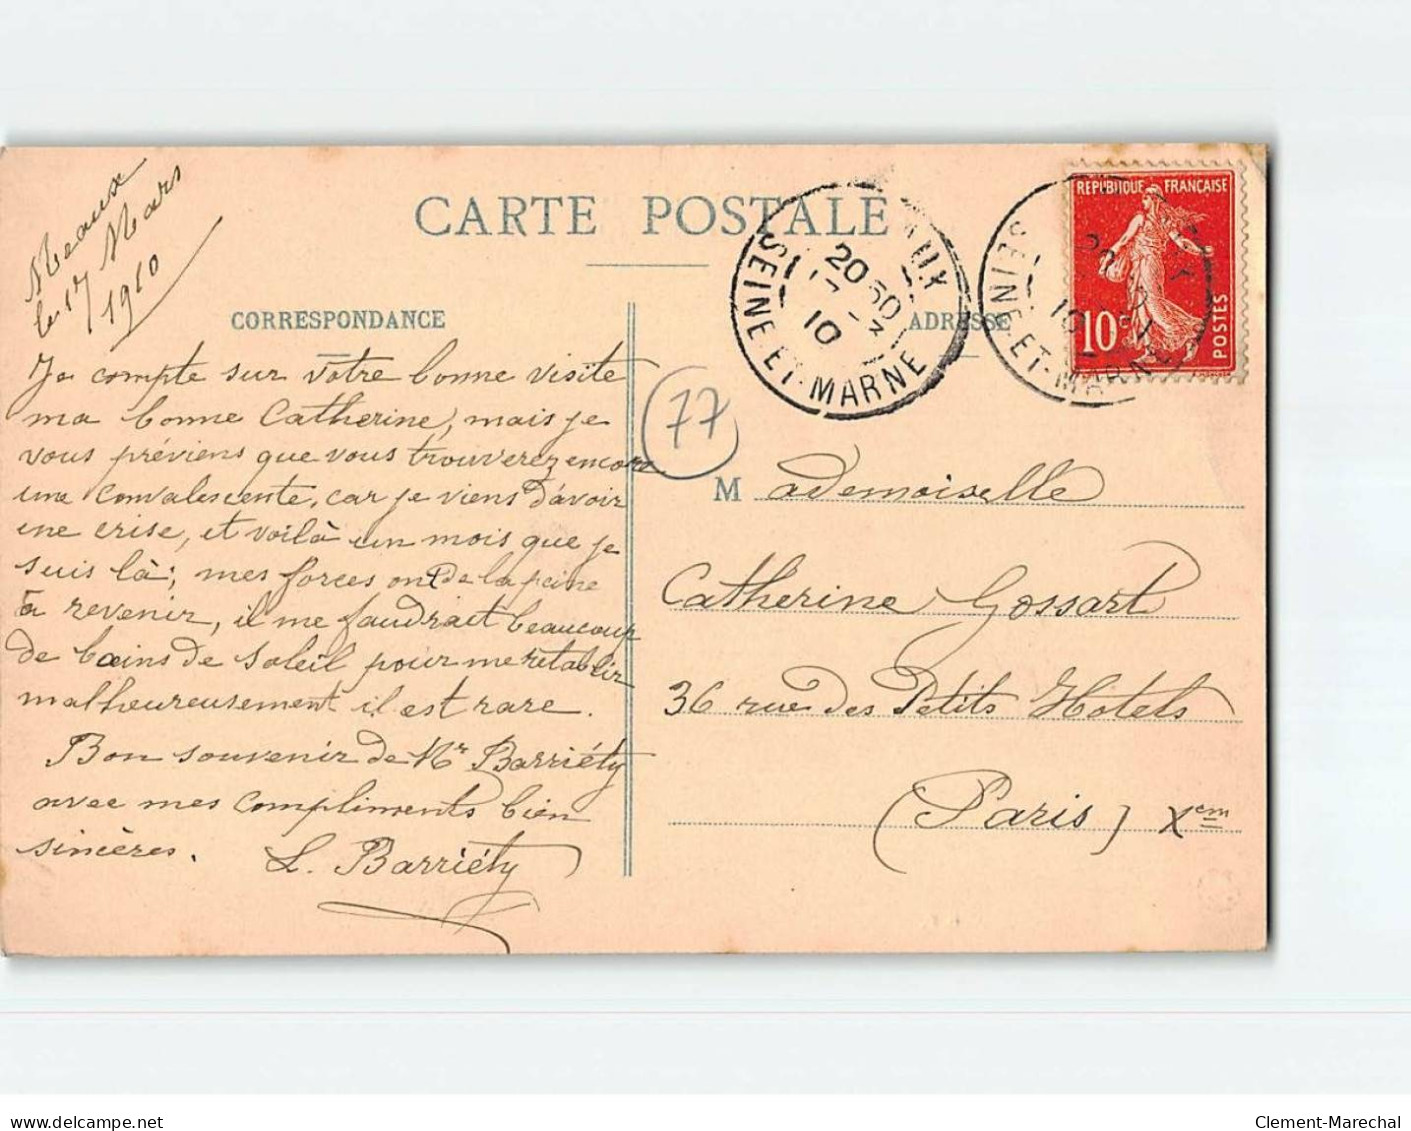 CARTE POSTALE
Meaux
le 17 Mars
1910
CORRESPONDANCE
Je compte sur votre bonne visite
ma bonne Catherine, mais je
vous préviens que vous trouverez encore
une convalescente, car je viens d'avoir
une crise, et voilà un mois que je
suis là; mes forces ont de la peine
à revenir, il me faudrait beaucoup
de bains de soleil pour me rétablir
malheureusement il est rare.
Bon souvenir de Mr Barriéty
avec mes compliments bien
sincères. L. Barriéty
77
20 50
17 - 3
10
SEINE-ET-MARNE
SEINE-ET-MARNE
REPUBLIQUE FRANÇAISE
10c
POSTES
ADRESSE
Mademoiselle
Catherine Gossart
36 rue des Petits Hotels
(Paris) Xem
Clement-Marechal